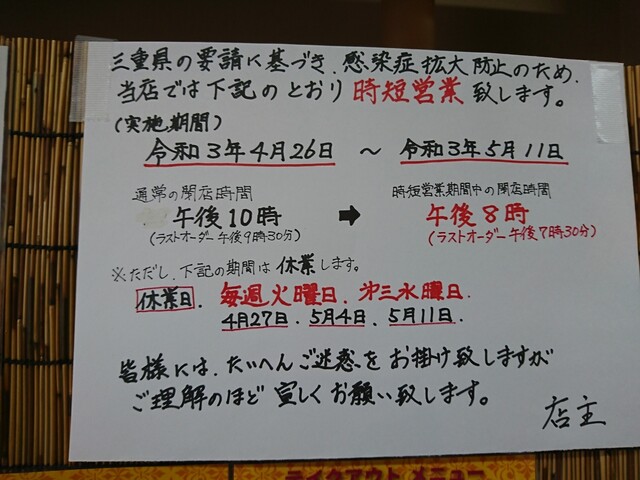 三重県の要請に基づき、感染症拡大防止のため、
当店では下記のとおり 時短営業 致します。
(実施期間)
令和3年4月26日 ～ 令和3年5月11日
通常の閉店時間 時短営業期間中の閉店時間
午後10時 ➡ 午後8時
(ラストオーダー午後9時30分) (ラストオーダー午後7時30分)
※ただし、下記の期間は 休業します。
休業日. 毎週火曜日、第三水曜日.
4月27日. 5月4日. 5月11日.
皆様には、たいへんご迷惑をお掛け致しますが
ご理解のほど 宜しくお願い致します。
店主
テイクアウトメニュー